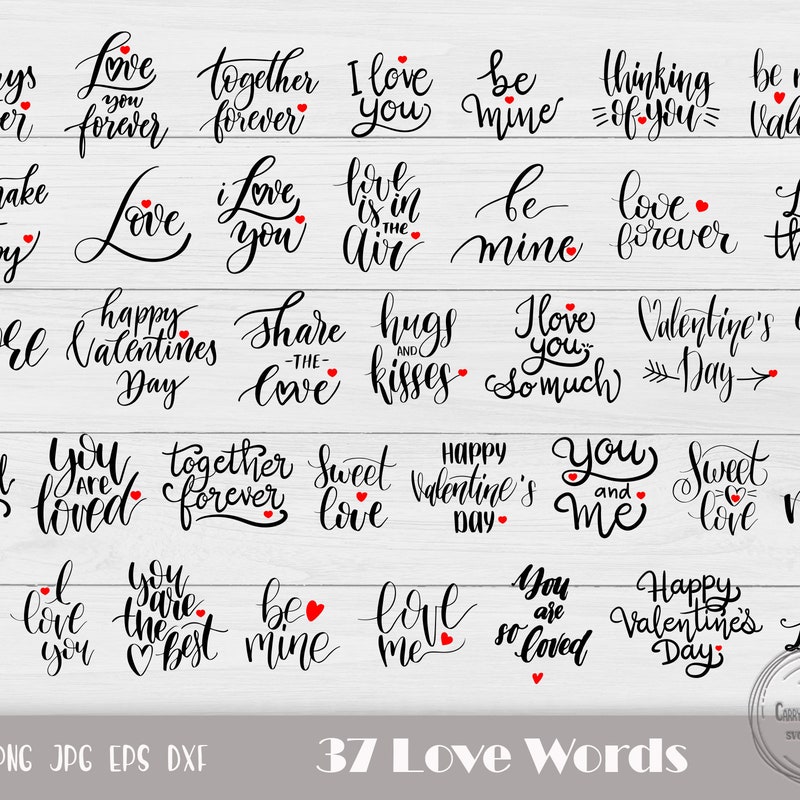 Love
you
forever
together
forever
I love
you
be
mine
thinking
of you
be
Love
i Love
you
love
is in
THE
Air
be
mine
love
forever
happy
Valentines
Day
share
-THE-
love
hugs
AND
kisses
I love
you
so much
Valentine's
Day
you
ARE
loved
together
forever
Sweet
love
HAPPY
Valentine's
DAY
you
and
me
Sweet
love
I
love
you
you
are
the
best
be
mine
love
me
You
are
so loved
Happy
Valentine's
Day
PNG JPG EPS DXF
37 Love Words